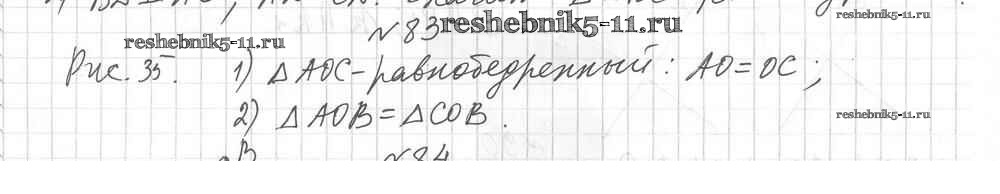 №83 reshebnik5-11.ru
reshebnik5-11.ru
Рис. 35. 1) △AOC-равнобедренный: AO=OC;
2) △AOB=△COB. reshebnik5-11.ru
B №84